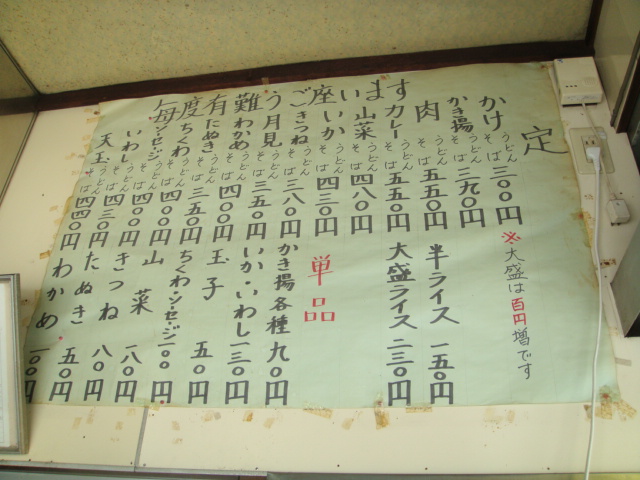 毎度有難うございます
定
かけ うどん そば 三〇〇円
かき揚 うどん そば 三九〇円
肉 うどん そば 五五〇円
カレー うどん そば 五五〇円
山菜 うどん そば 四八〇円
いか うどん そば 四三〇円
きつね うどん そば 三八〇円
月見 うどん そば 三五〇円
わかめ うどん そば 四〇〇円
たぬき うどん そば 三五〇円
ちくわ うどん そば
ソーセージ うどん そば 四〇〇円
いわし うどん そば 四三〇円
天玉 うどん そば 四四〇円
※大盛は百円増です
半ライス 一五〇円
大盛ライス 二三〇円
単品
かき揚各種 九〇円
いか・いわし 一三〇円
玉子 五〇円
ちくわ・ソーセージ 一〇〇円
山菜 一八〇円
きつね 八〇円
たぬき 五〇円
わかめ 一〇〇円